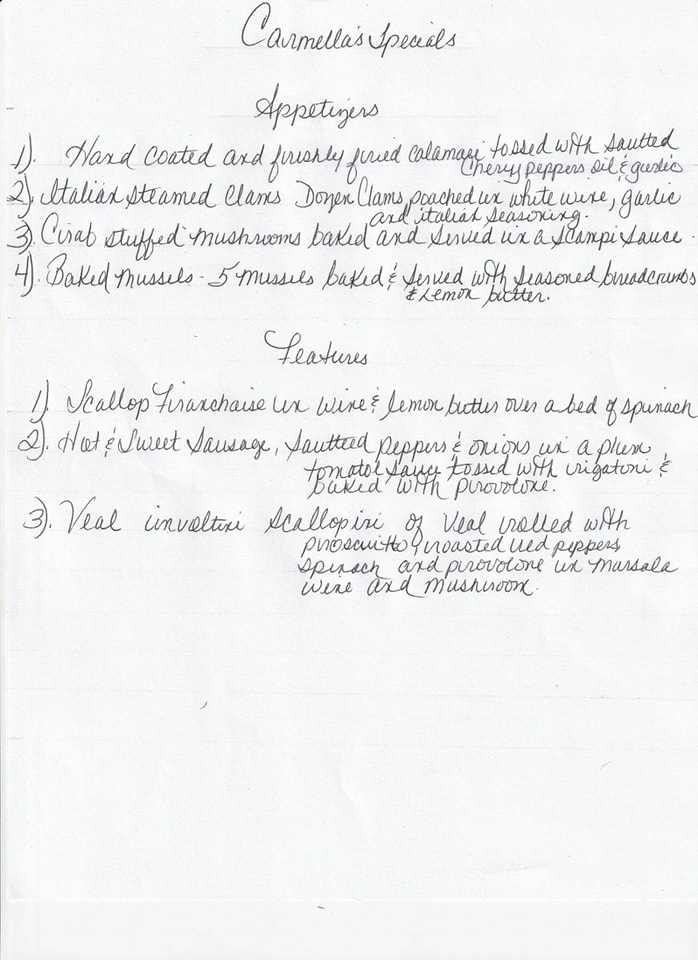 Carmella's Specials
Appetizers
1). Hand coated and freshly fried calamari tossed with sautted
Cherry peppers oil & garlic
2). Italian steamed clams Dozen Clams, poached in white wine, garlic
and italian seasoning.
3) Crab stuffed mushrooms baked and served in a scampi sauce.
4). Baked mussels - 5 mussels baked & served with seasoned breadcrumbs
& lemon butter.
Features
1). Scallop Franchaise in wine & lemon butter over a bed of spinach
2). Hot & Sweet Sausage, sautteed peppers & onions in a plum
tomatoe sauce tossed with rigatoni &
baked with provolone.
3). Veal involtini scallopini of veal rolled with
proscuitto, roasted red peppers
spinach and provolone in marsala
wine and mushroom.